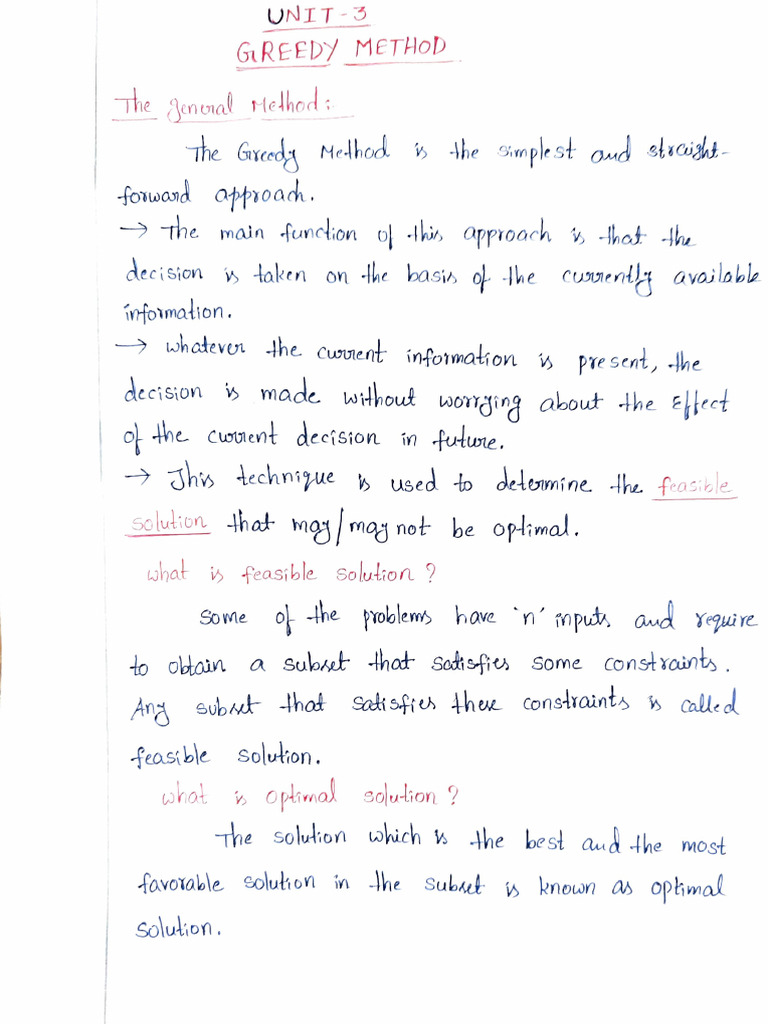 UNIT-3
GREEDY METHOD
The general Method:
The Greedy Method is the simplest and straight-
forward approach.
→ The main function of this approach is that the
decision is taken on the basis of the currently available
information.
→ whatever the current information is present, the
decision is made without worrying about the Effect
of the current decision in future.
→ This technique is used to determine the feasible
solution that may/may not be optimal.
what is feasible solution?
Some of the problems have 'n' inputs and require
to obtain a subset that satisfies some constraints.
Any subset that satisfies these constraints is called
feasible solution.
what is optimal solution?
The solution which is the best and the most
favorable solution in the subset is known as optimal
solution.